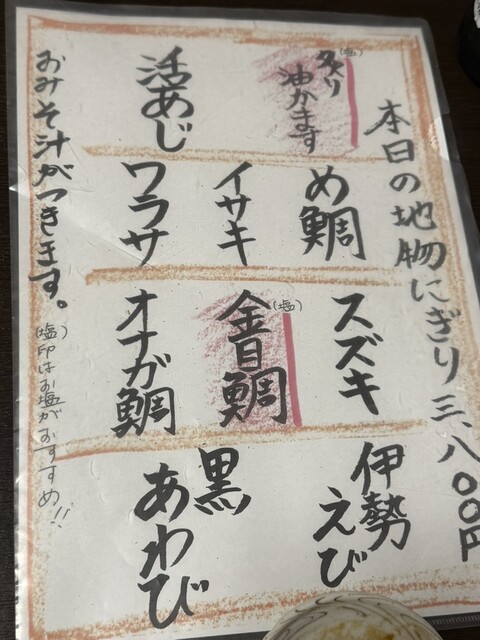 本日の地物にぎり三、八〇〇円
炙り(塩)
油かます
活あじ
め鯛
イサキ
ワラサ
スズキ
金目鯛(塩)
オナガ鯛
伊勢
えび
黒
あわび
おみそ汁がつきます。
(塩)印はお塩がおすすめ!!